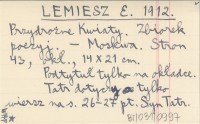 LEMIESZ E. 1912.
Przydrożne Kwiaty. Zbiorek
poezyj. - Moskwa. Stron
43, 1 kl., 14 x 21 cm.
Podtytuł tylko na okładce.
Tatr dotyczą tylko
wiersz na s. 26-27 pt. Syn Tatr.